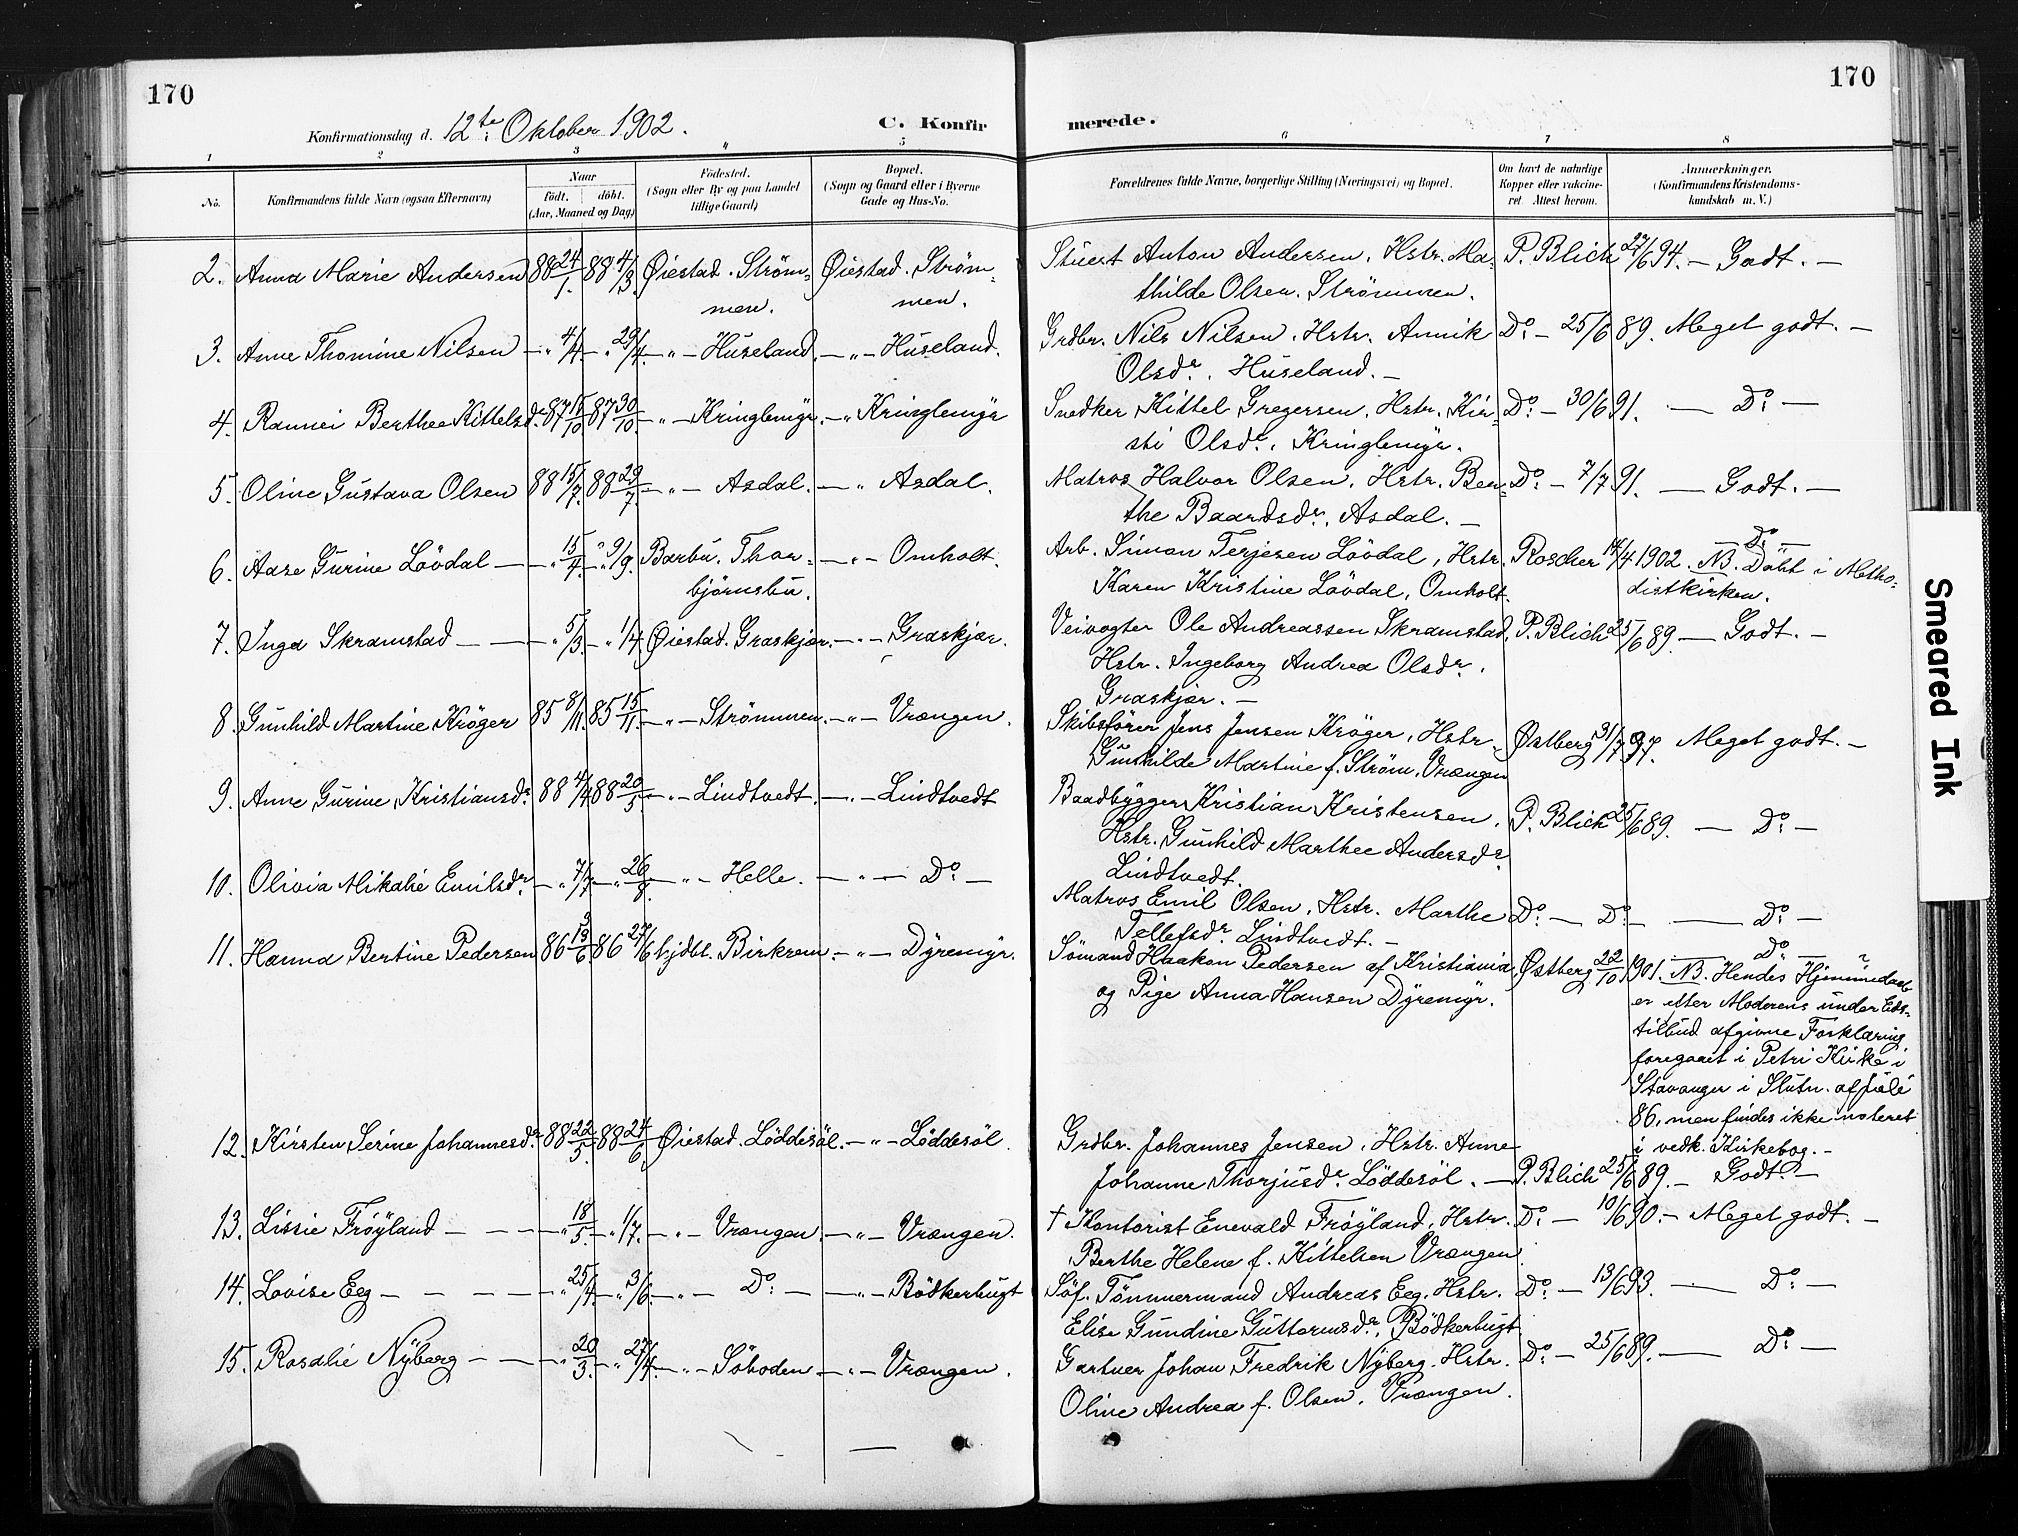 170
170
Konfirmationsdag d. 12te Oktober 1902.
C. Konfir
merede.
1 2 3 " 5 6 7 8
No.
Konfirmandens fulde Navn (ogsaa Efternavn)
Naar
födt. döbt.
(Aar, Maaned og Dag)
Födested.
(Sogn eller By og paa Landet
tillige Gaard)
Bopæl.
(Sogn og Gaard eller i Byerne
Gade og Hus-No.
Forældrenes fulde Navne, borgerlige Stilling (Næringsvei) og Bopæl.
Om havt de naturlige
Kopper eller vakcine-
ret. Attest herom.
Anmærkninger.
(Konfirmandens Kristendoms-
kundskab m. V.)
2. Anna Marie Andersen 88 24/1. 88 4/3 Øiestad. Ström- Øiestad. Ström-
men. men.
Stuert Anton Andersen, Hstr. Ma- P. Blich 27/6 94. — Godt. —
thilde Olsen. Strömmen.
3. Anne Thomine Nilsen — " 4/4 — " 29/4 — " — Huseland. — " — Huseland.
Grdbr. Nils Nilsen, Hstr. Annik Do. — 25/6 89. Meget godt. —
Olsdr. Huseland. —
4. Rannei Berthee Kittelsdr. 87 15/10 87 30/10. — " — Kringlemyr. — " Kringlemyr
Snedker Kittel Gregersen, Hstr. Kir- Do. — 30/6 91. — Do. —
sti Olsdr., Kringlemyr.
5. Oline Gustava Olsen 88 15/7. 88 29/7 — " — Asdal. — " Asdal.
Matros Halvor Olsen, Hstr. Ber- Do. — 7/7 91. — Godt. —
the Baardsdr., Asdal. —
6. Aase Gurine Lövdal — " 15/4 — " 9/9. Barbu. Thor- — " — Omholt.
björnsbu.
Arb. Simon Terjesen Lövdal, Hstr. Roscher 14/4 1902. — Do. — NB. Döbt i Metho-
Karen Kristine Lövdal, Omholt. distkirken.
7. Inga Skramstad — — " 5/3 — " 1/4 Øiestad. Graskjær. — " — Graskjær.
Veivogter Ole Andreassen Skramstad, P. Blich 25/6 89. — Godt. —
Hstr. Ingeborg Andrea Olsdr.,
Graskjær. —
8. Gunhild Martine Kröger 85 8/11. 85 15/11. — " — Strömmen. — " — Vrængen.
Skibsförer Jens Jensen Kröger, Hstr. Østberg 31/7 97. Meget godt. —
Gunhilde Martine f. Ström, Vrængen
9. Anne Gurine Kristiansdr. 88 4/4 88 20/5 — " — Lindtvedt. — " — Lindtvedt
Baadbygger Kristian Kristensen, P. Blich 25/6 89. — Do. —
Hstr. Gunhild Marthee Andersdr.
Lindtvedt.
10. Olivia Mikalie Emilsdr. — " 7/7 — " 26/8. — " — Helle. — " — Do. —
Matros Emil Olsen, Hstr. Marthe Do. — Do. — — Do. —
Tellefsdr. Lindtvedt. —
11. Hanna Bertine Pedersen 86 13/6 86 27/6 hjdbt. Birkrem. — " — Dyremyr.
Sömand Haakon Pedersen af Kristiania, Østberg 22/10 1901. — Do. — NB. Hendes Hjemmedaab
og Pige Anna Hansen Dyremyr. er efter Moderens under Eds-
tilbud afgivne Forklaring
foregaaet i Petri Kirke i
Stavanger i Slutn. af Juli
86, men findes ikke noteret
i vedk. Kirkebog. —
12. Kirsten Serine Johannesdr. 88 22/5. 88 24/6 Øiestad. Löddesöl. — " — Löddesöl.
Grdbr. Johannes Jensen, Hstr. Anne
Johanne Thorjusdr. Löddesöl. — P. Blich 25/6 89. — Godt. —
13. Lissie Fröyland — — — " 18/5. — " 1/7. — " — Vrængen. — " — Vrængen.
† Kontorist Enevald Fröyland, Hstr. Do. — 10/6 90. — Meget godt. —
Berthe Helene f. Kittelsen Vrængen.
14. Lovise Eeg — — — — " 25/4. — " 3/6. — " — Do. — — " — Bödkerbugt
Söf. Tömmermand Andreas Eeg, Hstr. Do. — 13/6 93. — Do. —
Elise Gundine Guttormsdr., Bödkerbugt
15. Rosalie Nyberg — — — " 20/3. — " 27/4. — " — Söboden — " — Vrængen.
Gartner Johan Fredrik Nyberg. Hstr. Do. — 25/6 89. — Do. —
Oline Andrea f. Olsen, Vrængen.
Smeared Ink